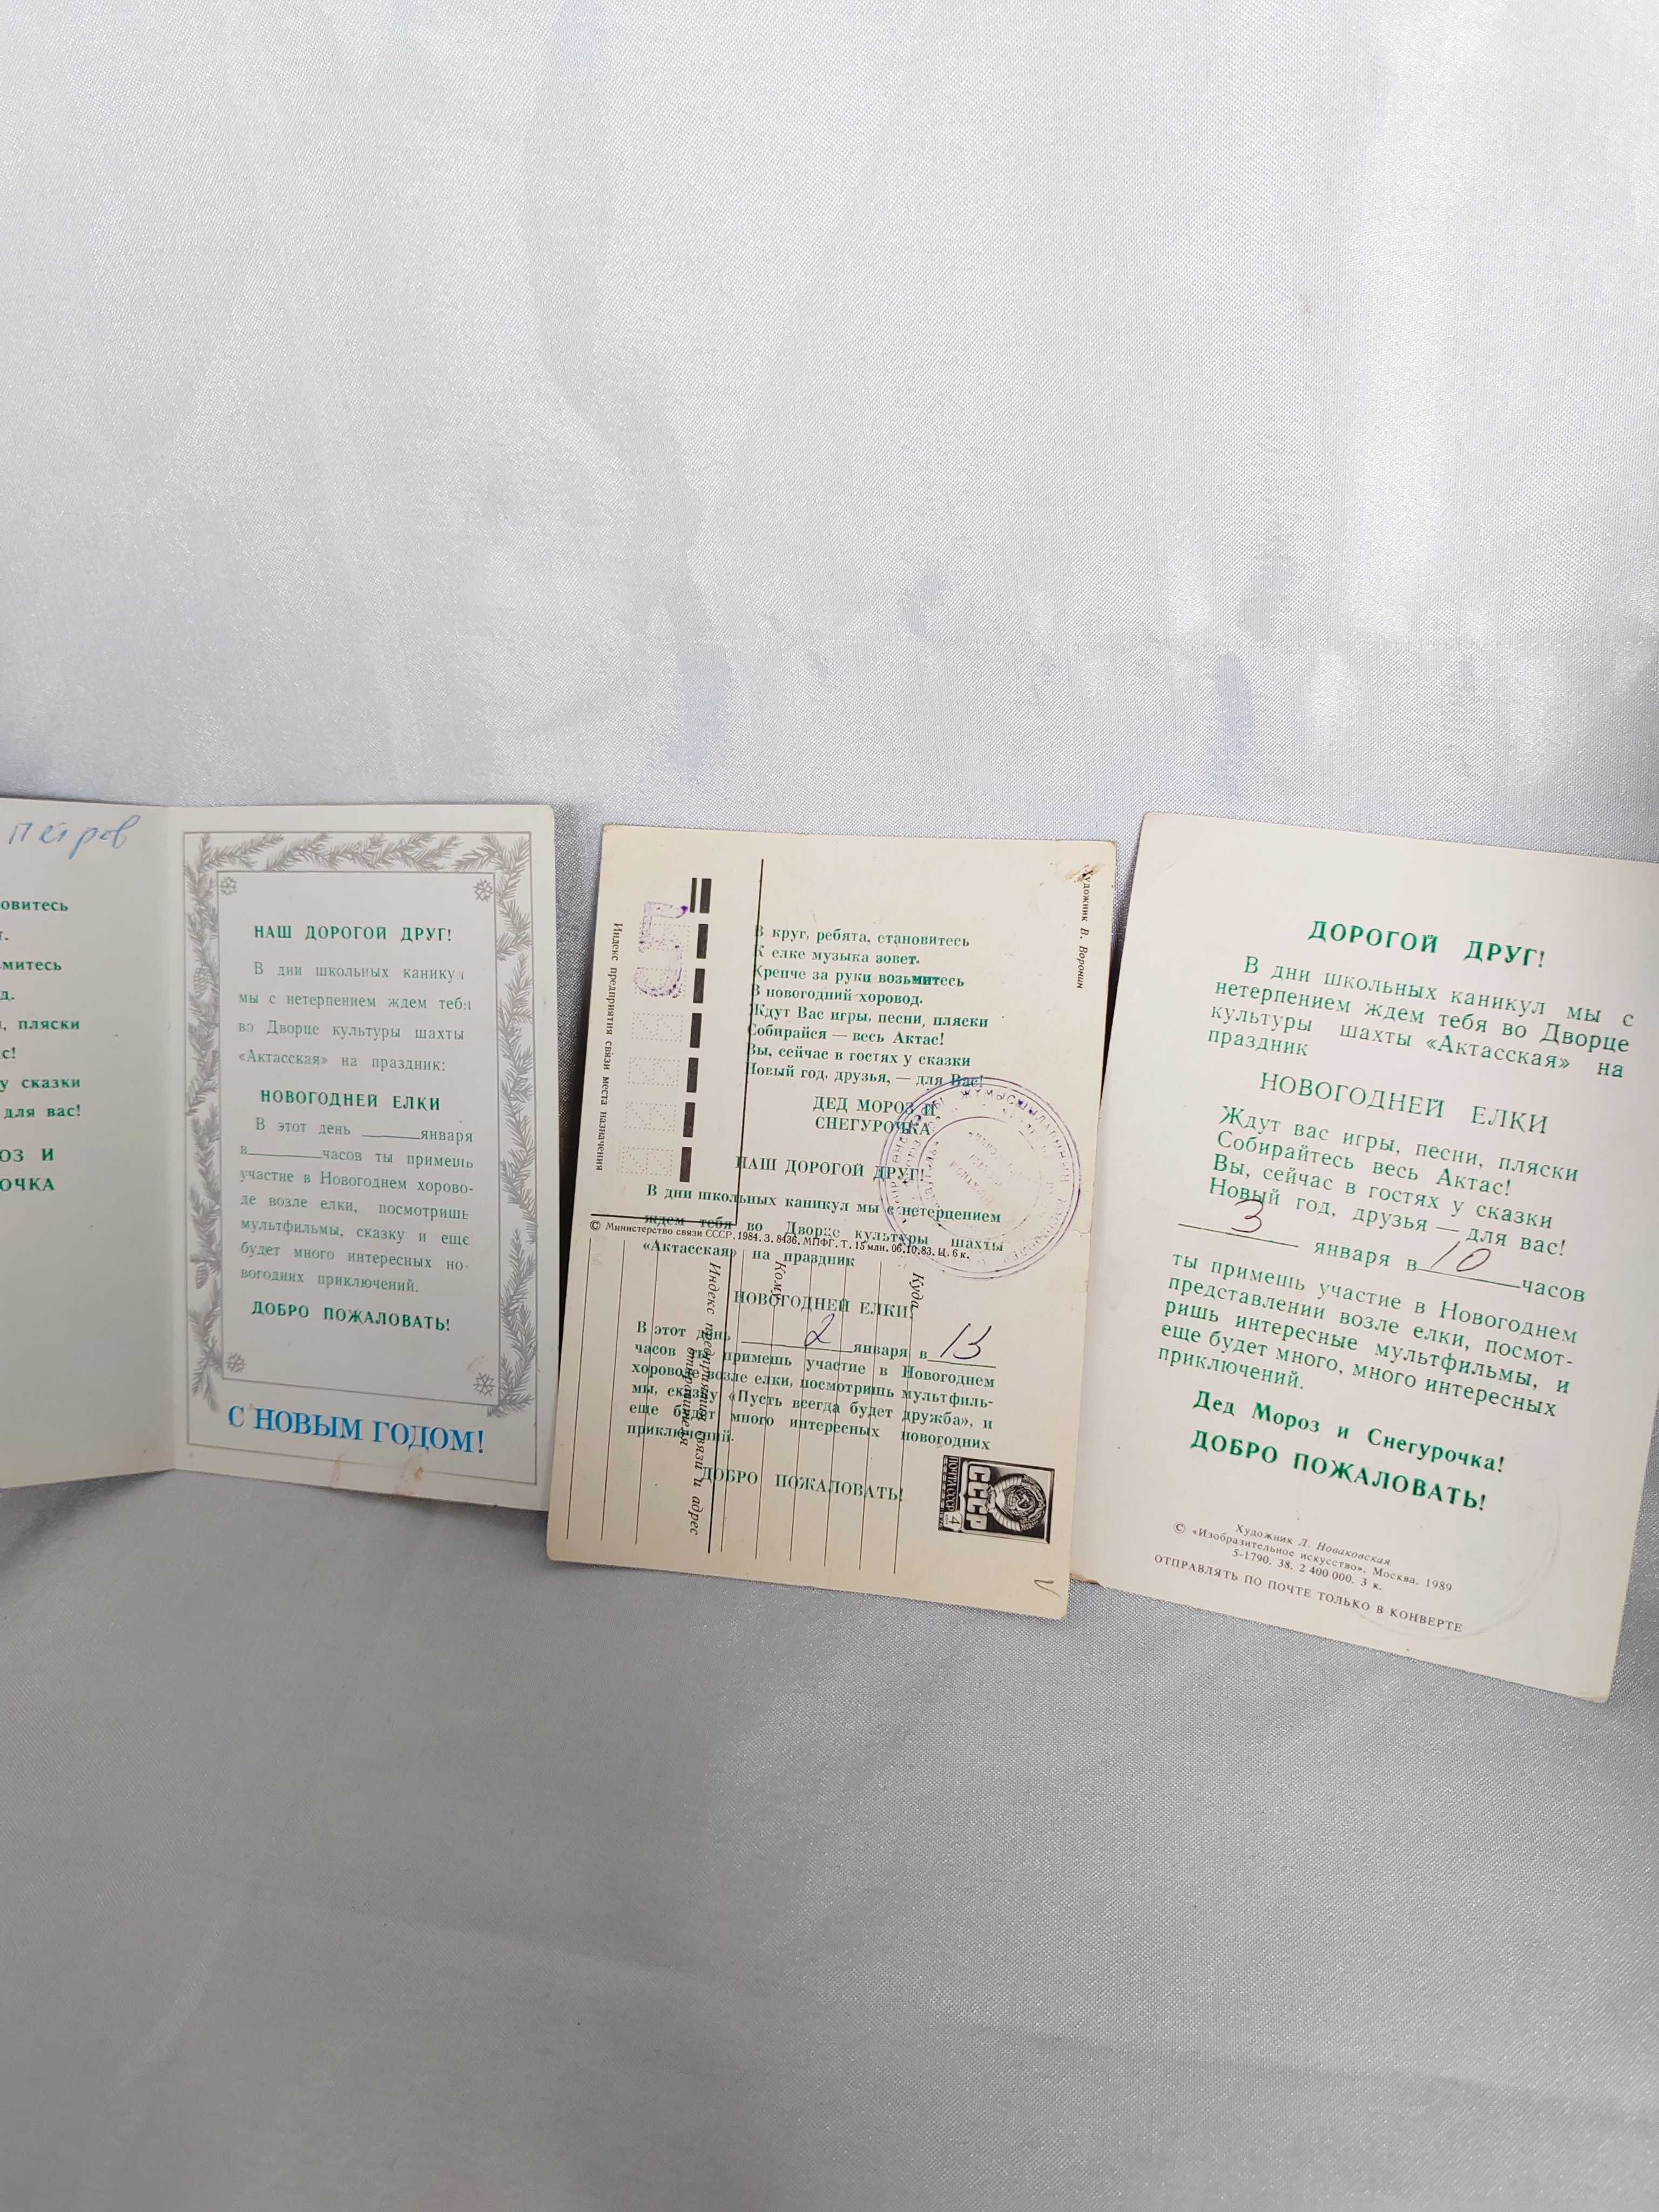 петров
овитесь
т.
ьмитесь
д.
, пляски
с!
у сказки
для вас!
ОЗ И
ОЧКА
НАШ ДОРОГОЙ ДРУГ!
В дни школьных каникул
мы с нетерпением ждем тебя
во Дворце культуры шахты
«Актасская» на праздник:
НОВОГОДНЕЙ ЕЛКИ
В этот день ______января
в________часов ты примешь
участие в Новогоднем хорово-
де возле елки, посмотришь
мультфильмы, сказку и еще
будет много интересных но-
вогодних приключений.
ДОБРО ПОЖАЛОВАТЬ!
С НОВЫМ ГОДОМ!
Индекс предприятия связи места назначения
Художник В. Воронин
В круг, ребята, становитесь
К елке музыка зовет.
Крепче за руки возьмитесь
В новогодний хоровод.
Ждут Вас игры, песни, пляски
Собирайся — весь Актас!
Вы, сейчас в гостях у сказки
Новый год, друзья, — для Вас!
ДЕД МОРОЗ И
СНЕГУРОЧКА
НАШ ДОРОГОЙ ДРУГ!
В дни школьных каникул мы с нетерпением
ждем тебя во Дворце культуры шахты
© Министерство связи СССР. 1984. З. 8436. МПФГ. Т. 15 млн. 06.10.83. Ц. 6 к.
«Актасская» на праздник
НОВОГОДНЕЙ ЕЛКИ!
В этот день 2 января в 13
часов ты примешь участие в Новогоднем
хороводе возле елки, посмотришь мультфиль-
мы, сказку «Пусть всегда будет дружба», и
еще будет много интересных новогодних
приключений.
ДОБРО ПОЖАЛОВАТЬ!
Куда
Кому
Индекс предприятия связи и адрес
отправителя
ПОЧТА СССР
СССР
4
ДОРОГОЙ ДРУГ!
В дни школьных каникул мы с
нетерпением ждем тебя во Дворце
культуры шахты «Актасская» на
праздник
НОВОГОДНЕЙ ЕЛКИ
Ждут вас игры, песни, пляски
Собирайтесь весь Актас!
Вы, сейчас в гостях у сказки
Новый год, друзья — для вас!
3 января в 10 часов
ты примешь участие в Новогоднем
представлении возле елки, посмот-
ришь интересные мультфильмы, и
еще будет много, много интересных
приключений.
Дед Мороз и Снегурочка!
ДОБРО ПОЖАЛОВАТЬ!
Художник Л. Новаковская
© «Изобразительное искусство». Москва. 1989
5-1790. 38. 2 400 000. 3 к.
ОТПРАВЛЯТЬ ПО ПОЧТЕ ТОЛЬКО В КОНВЕРТЕ